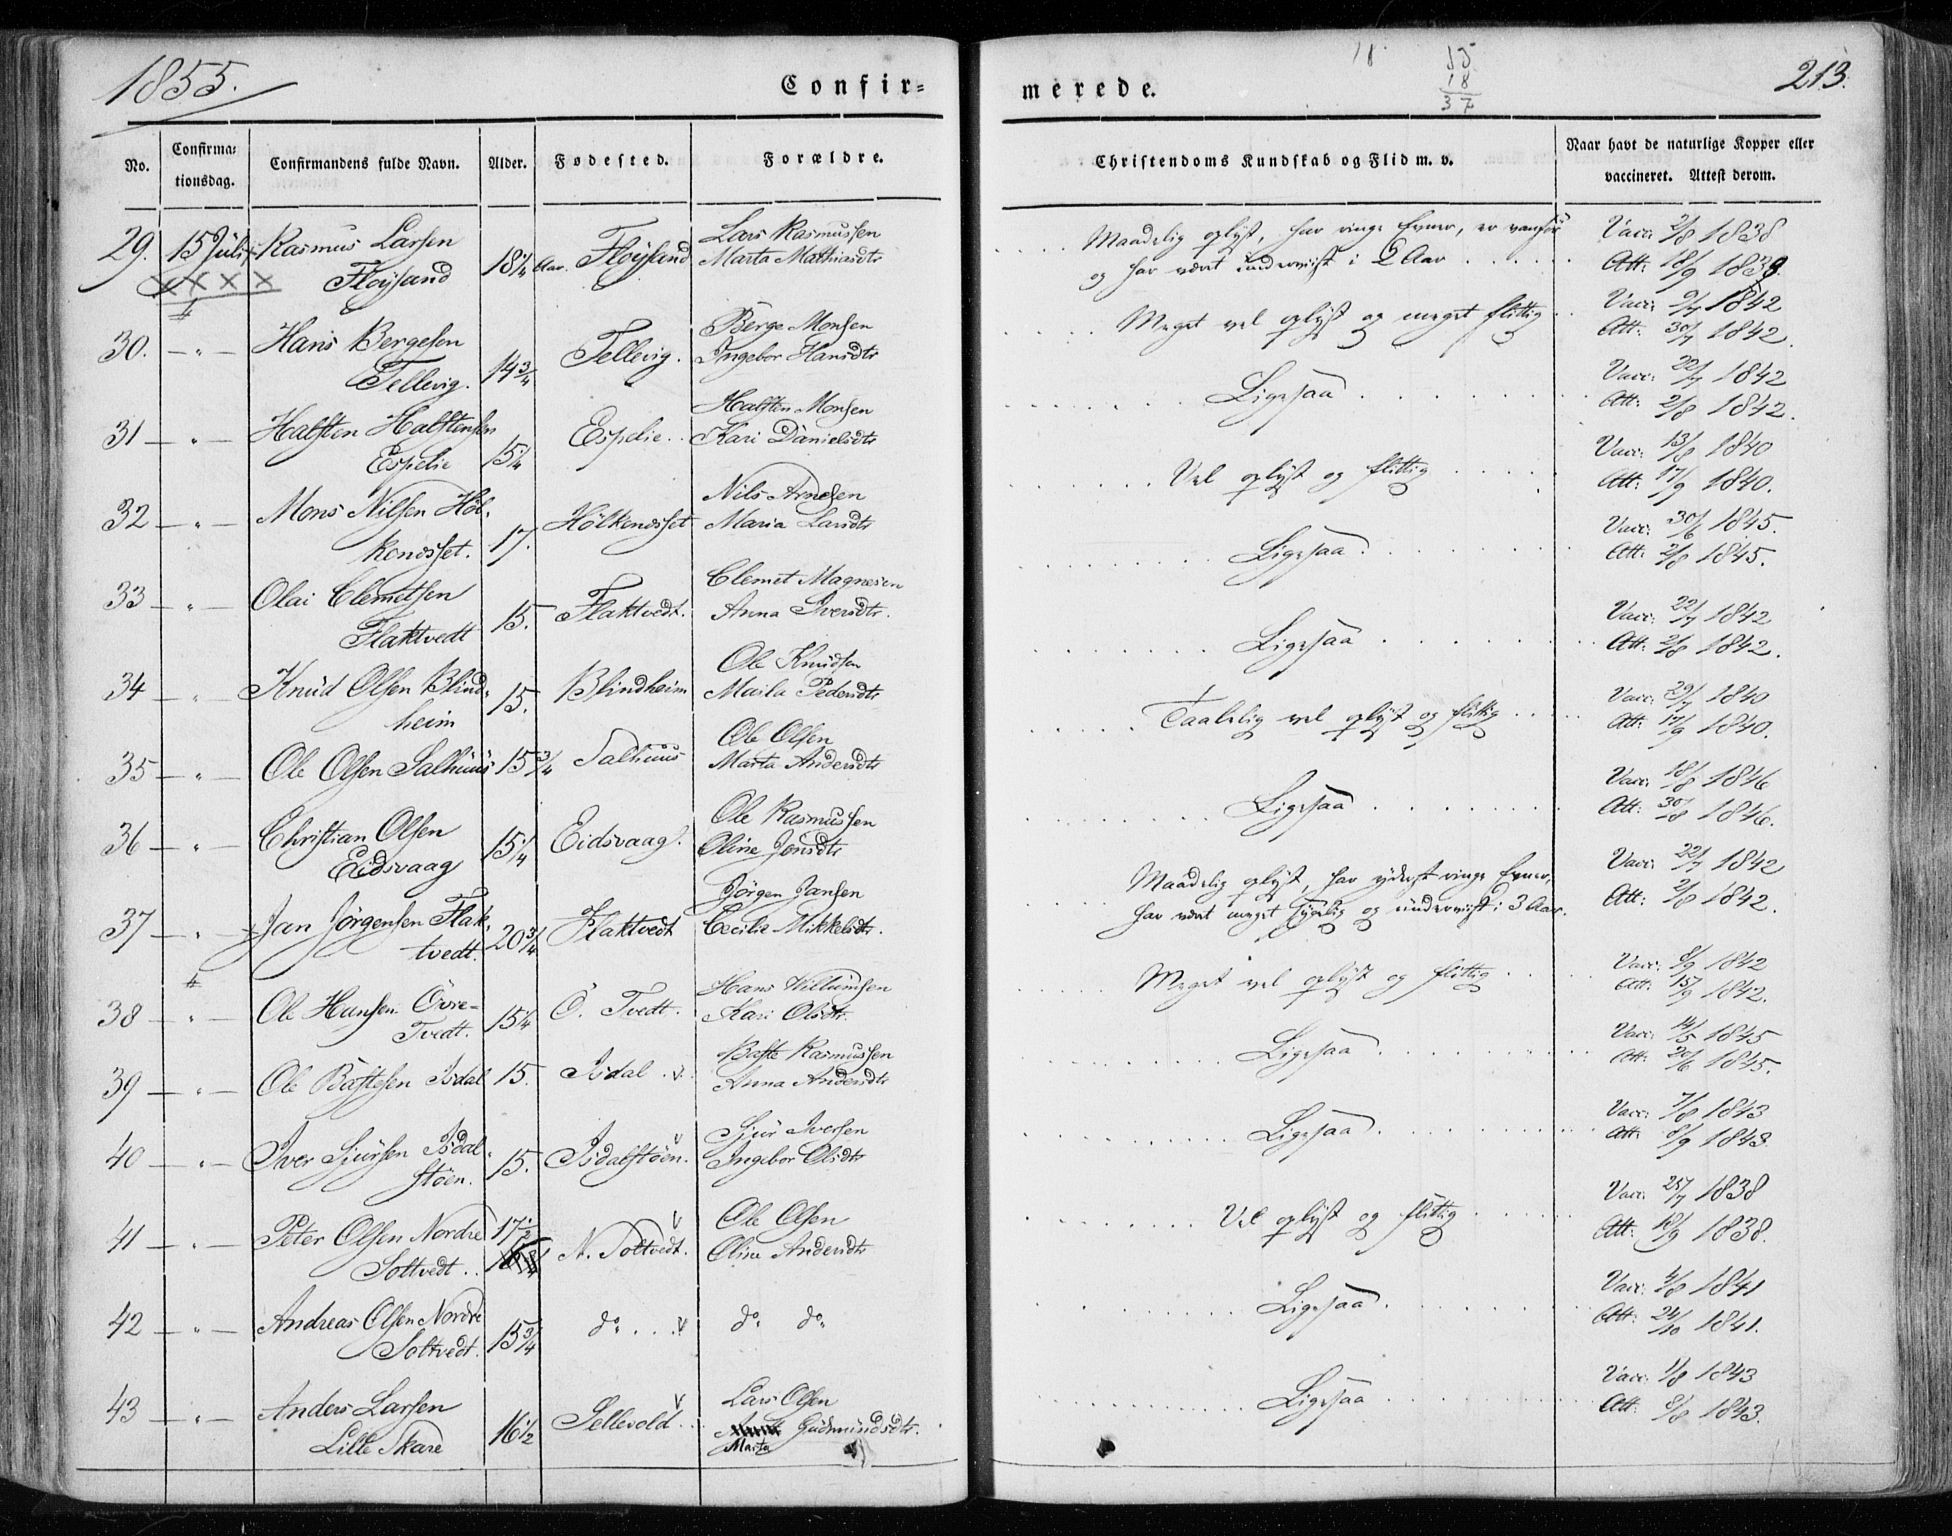 1855.
Confir=
merede.
18.
15
18
37
213.
No.
Confirma=
tionsdag.
Confirmandens fulde Navn.
Alder.
Fødested.
Forældre.
Christendoms Kundskab og Flid m. v.
Naar havt de naturlige Kopper eller
vaccineret. Attest derom.
29. 15 Juli Rasmus Larsen Fløysand 18¼ Aar. Fløysand Lars Rasmussen Marta Mathiasdtr Maadelig oplyst, har ringe Evner, er vanfør og har været underviist i 2 Aar Vacc: 2/8 1838 Att: 18/9 1838.
30. — " — Hans Bergesen Tellevig. 14¾ Tellevig. Berge Monsen Ingebor Hansdtr Meget vel oplyst og meget flittig Vacc: 9/7 1842 Att: 30/7 1842.
31 — " — Halsten Halstensen Espelie 15¼ Espelie.. Halsten Monsen Kari Danielsdtr Ligesaa Vacc: 22/7 1842 Att: 2/8 1842.
32 — " — Mons Nilsen Höl- kenosset. 17. Hölkenosset Nils Arnesen Maria Larsdtr Vel oplyst og flittig Vacc: 13/8 1840 Att: 17/9 1840.
33 — " — Olai Clemetsen Flaktvedt 15. Flaktvedt. Clemet Magnesen Anna Iversdtr. Ligesaa. Vacc: 30/6 1845. Att: 2/8 1845.
34 — " — Knud Olsen Blind- heim 15. Blindheim Ole Knudsen Marta Pedersdtr Ligesaa Vacc: 22/7 1842 Att: 2/8 1842.
35 — " — Ole Olsen Salhuus 15¾ Salhuus Ole Olsen Marta Andersdtr Taalelig vel oplyst og flittig Vacc: 29/7 1840 Att: 17/9 1840.
36 — " — Christian Olsen Eidsvaag 15¼ Eidsvaag. Ole Rasmussen Oline Jonsdtr Ligesaa Vacc: 18/8 1846 Att: 30/8 1846.
37 — " — Jan Jörgensen Flak- tvedt. 20¾ Flaktvedt Jörgen Jansen Cecilie Mikkelsdtr. Maadelig oplyst, har yderst ringe Evner, har været meget sygelig og underviist i 3 Aar. Vacc: 22/7 1842 Att: 2/8 1842.
38 — " — Ole Hansen Övre- Tvedt. 15¼ Ö. Tvedt. Hans Villumsen Kari Olsdtr. Meget vel oplyst og flittig Vacc: 8/9 1842 Att: 15/9 1842.
39 — " — Ole Bastesen Isdal 15. Isdal . v. Baste Rasmussen Anna Andersdtr Ligesaa Vacc: 14/5 1845 Att: 20/6 1845.
40 — " — Iver Sjursen Isdal- stöen. 15. Isdalstöen. v Sjur Iversen Ingebor Olsdtr Ligesaa Vacc: 7/8 1843 Att: 8/9 1843.
41 — " — Peter Olsen Nordre Soltvedt.. 17½ N. Soltvedt. v Ole Olsen Oline Andersdtr Vel oplyst og flittig Vacc: 25/7 1838 Att: 18/9 1838.
42 — " — Andreas Olsen Nordre Soltvedt. 15¾ do . . . v do do Ligesaa. Vacc: 4/8 1841 Att: 24/10 1841.
43 — " — Anders Larsen Lille Skare 16½ Sellevold. v Lars Olsen Gudmundsdtr. Marta Ligesaa Vacc: 1/8 1843 Att: 8/8 1843.